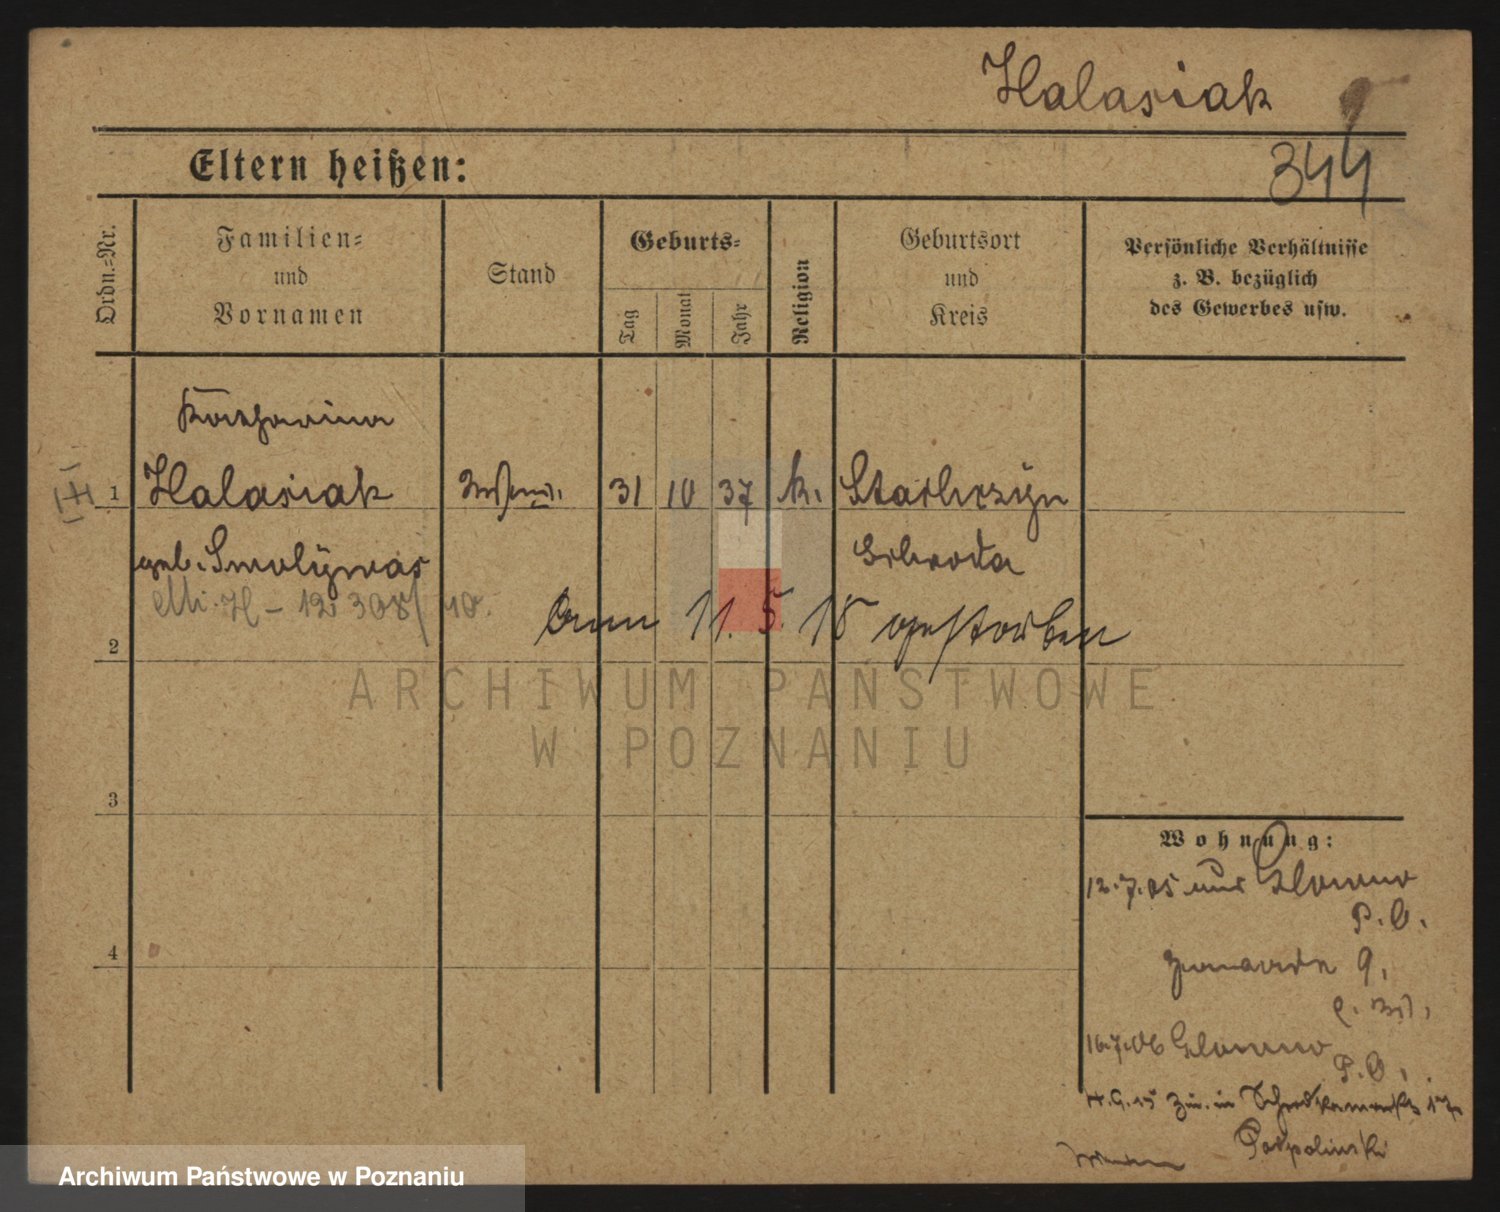 Halasiak
344
Eltern heißen:
Ordn.=Nr.
Familien=
und
Vornamen
Stand
Geburts=
Tag
Monat
Jahr
Religion
Geburtsort
und
Kreis
Persönliche Verhältnisse
z. B. bezüglich
des Gewerbes usw.
Katharina
1 Halasiak 31 10 37 k.
geb. Schroda
12 308/40.
am 11. 5. 18 gestorben
2
ARCHIWUM PAŃSTWOWE
W POZNANIU
3
Wohnung:
12.7.05 aus Glowno
P. O.
4
9.
16.7.06 Glowno
P. O.
zu. in
Pospolinski
Archiwum Państwowe w Poznaniu